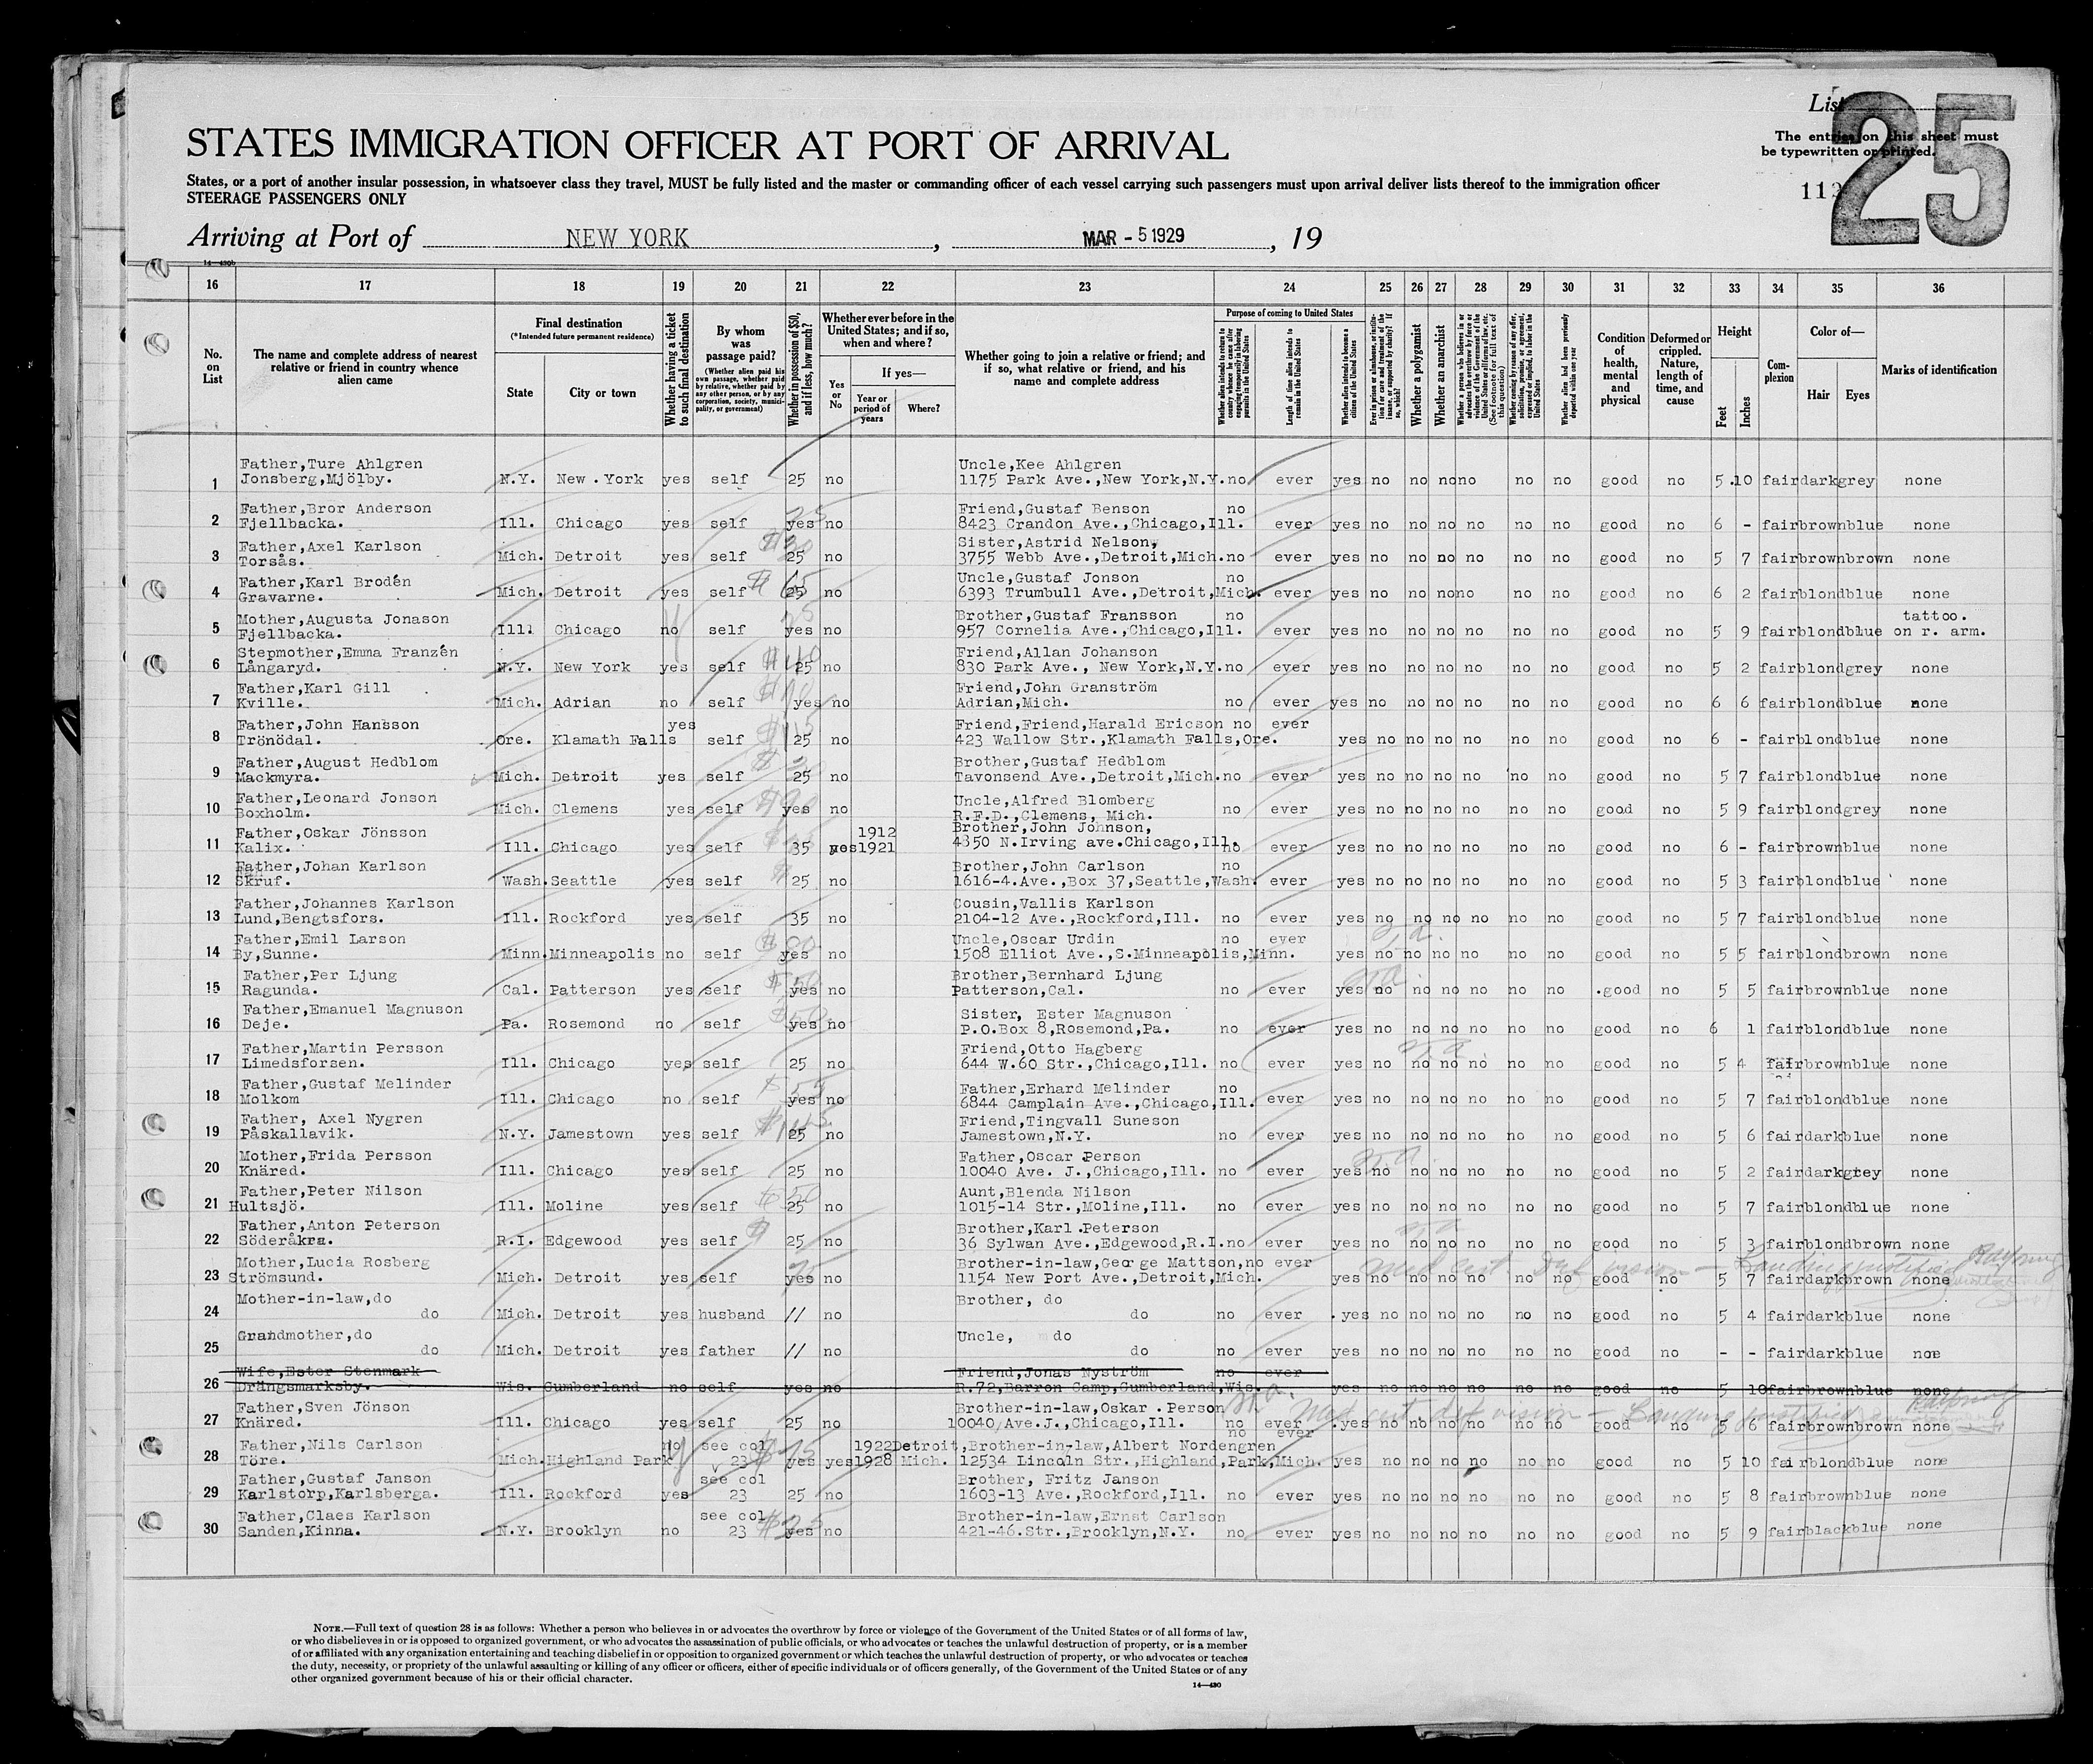 List
25
The entries on this sheet must
be typewritten or printed.
STATES IMMIGRATION OFFICER AT PORT OF ARRIVAL
States, or a port of another insular possession, in whatsoever class they travel, MUST be fully listed and the master or commanding officer of each vessel carrying such passengers must upon arrival deliver lists thereof to the immigration officer
STEERAGE PASSENGERS ONLY
Arriving at Port of NEW YORK, MAR - 5 1929, 19
14—430b
16 17 18 19 20 21 22 23 24 25 26 27 28 29 30 31 32 33 34 35 36
No. on List
The name and complete address of nearest relative or friend in country whence alien came
Final destination
(*Intended future permanent residence)
State
City or town
Whether having a ticket to such final destination
By whom was passage paid?
(Whether alien paid his own passage, whether paid by relative, whether paid by any other person, or by any corporation, society, municipality, or government)
Whether in possession of $50, and if less, how much?
Whether ever before in the United States; and if so, when and where?
Yes or No
If yes—
Year or period of years
Where?
Whether going to join a relative or friend; and if so, what relative or friend, and his name and complete address
Purpose of coming to United States
Whether alien intends to return to country whence he came after engaging temporarily in laboring pursuits in the United States
Length of time alien intends to remain in the United States
Whether alien intends to become a citizen of the United States
Ever in prison or almshouse, or institution for care and treatment of the insane, or supported by charity? If so, which?
Whether a polygamist
Whether an anarchist
Whether a person who believes in or advocates the overthrow by force or violence of the Government of the United States or all forms of law, etc. (See footnote for full text of this question)
Whether coming by reason of any offer, solicitation, promise, or agreement, expressed or implied, to labor in the United States
Whether alien had been previously deported within one year
Condition of health, mental and physical
Deformed or crippled. Nature, length of time, and cause
Height
Feet
Inches
Complexion
Color of—
Hair
Eyes
Marks of identification
Father,Ture Ahlgren Uncle,Kee Ahlgren
1 Jonsberg,Mjölby. N.Y. New York yes self 25 no 1175 Park Ave.,New York,N.Y. no ever yes no no no no no no good no 5 10 fair dark grey none
Father,Bror Anderson Friend,Gustaf Benson no
2 Fjellbacka. Ill. Chicago yes self yes no 8423 Crandon Ave.,Chicago,Ill. ever yes no no no no no no good no 6 - fair brown blue none
Father,Axel Karlson Sister,Astrid Nelson,
3 Torsås. Mich. Detroit yes self 25 no 3755 Webb Ave.,Detroit,Mich. no ever yes no no no no no no good no 5 7 fair brown brown none
Father,Karl Brodén Uncle,Gustaf Jonson no
4 Gravarne. Mich. Detroit yes self 25 no 6393 Trumbull Ave.,Detroit,Mich. ever yes no no no no no no good no 6 2 fair blond blue none
Mother,Augusta Jonason Brother,Gustaf Fransson no tattoo.
5 Fjellbacka. Ill. Chicago no self yes no 957 Cornelia Ave.,Chicago,Ill. ever yes no no no no no no good no 5 9 fair blond blue on r. arm.
Stepmother,Emma Franzén Friend,Allan Johanson
6 Långaryd. N.Y. New York yes self 25 no 830 Park Ave., New York,N.Y. no ever yes no no no no no no good no 5 2 fair blond grey none
Father,Karl Gill Friend,John Granström
7 Kville. Mich. Adrian no self yes no Adrian,Mich. no ever yes no no no no no no good no 6 6 fair blond blue none
Father,John Hansson yes Friend,Friend,Harald Ericson no ever
8 Trönödal. Ore. Klamath Falls self 25 no 423 Wallow Str.,Klamath Falls,Ore. yes no no no no no no good no 6 - fair blond blue none
Father,August Hedblom Brother,Gustaf Hedblom
9 Mackmyra. Mich. Detroit yes self 25 no Tavonsend Ave.,Detroit,Mich. no ever yes no no no no no no good no 5 7 fair blond blue none
Father,Leonard Jonson Uncle,Alfred Blomberg
10 Boxholm. Mich. Clemens yes self yes no R.F.D.,Clemens, Mich. no ever yes no no no no no no good no 5 9 fair blond grey none
Father,Oskar Jönsson 1912 Brother,John Johnson,
11 Kalix. Ill. Chicago yes self 35 yes 1921 4850 N.Irving ave.Chicago,Ill. no ever yes no no no no no no good no 6 - fair brown blue none
Father,Johan Karlson Brother,John Carlson no
12 Skruf. Wash. Seattle yes self 25 no 1616-4.Ave.,Box 37,Seattle,Wash. ever yes no no no no no no good no 5 3 fair blond blue none
Father,Johannes Karlson Cousin,Vallis Karlson
13 Lund,Bengtsfors. Ill. Rockford yes self 35 no 2104-12 Ave.,Rockford,Ill. no ever yes no no no no no no good no 5 7 fair blond blue none
Father,Emil Larson Uncle,Oscar Urdin no ever
14 By,Sunne. Minn. Minneapolis no self yes no 1508 Elliot Ave.,S.Minneapolis,Minn. yes no no no no no no good no 5 5 fair blond brown none
Father,Per Ljung Brother,Bernhard Ljung
15 Ragunda. Cal. Patterson yes self yes no Patterson,Cal. no ever yes no no no no no no good no 5 5 fair brown blue none
Father,Emanuel Magnuson Sister, Ester Magnuson
16 Deje. Pa. Rosemond no self yes no P.O.Box 8,Rosemond,Pa. no ever yes no no no no no no good no 6 1 fair blond blue none
Father,Martin Persson Friend,Otto Hagberg
17 Limedsforsen. Ill. Chicago yes self 25 no 644 W.60 Str.,Chicago,Ill. no ever yes no no no no no no good no 5 4 fair brown blue none
Father,Gustaf Melinder Father,Erhard Melinder no
18 Molkom Ill. Chicago no self yes no 6844 Camplain Ave.,Chicago,Ill. ever yes no no no no no no good no 5 7 fair blond blue none
Father, Axel Nygren Friend,Tingvall Suneson
19 Påskallavik. N.Y. Jamestown yes self 25 no Jamestown,N.Y. no ever yes no no no no no no good no 5 6 fair dark blue none
Mother,Frida Persson Father,Oscar Person
20 Knäred. Ill. Chicago yes self 25 no 10040 Ave. J.,Chicago,Ill. no ever yes no no no no no no good no 5 2 fair dark grey none
Father,Peter Nilson Aunt,Blenda Nilson
21 Hultsjö. Ill. Moline yes self 25 no 1015-14 Str.,Moline,Ill. no ever yes no no no no no no good no 5 7 fair blond blue none
Father,Anton Peterson Brother,Karl Peterson
22 Söderåkra. R.I. Edgewood yes self 25 no 36 Sylwan Ave.,Edgewood,R.I. no ever yes no no no no no no good no 5 3 fair blond brown none
Mother,Lucia Rosberg Brother-in-law,George Mattson,no ever
23 Strömsund. Mich. Detroit yes self yes no 1154 New Port Ave.,Detroit,Mich. yes no no no no no no good no 5 7 fair dark brown none
Med cert Def vision — Landing justified
Mother-in-law,do Brother, do
24 do Mich. Detroit yes husband // no do no ever yes no no no no no no good no 5 4 fair dark blue none
Grandmother,do Uncle, do
25 do Mich. Detroit yes father // no do no ever yes no no no no no no good no - - fair dark blue none
Wife,Ester Stenmark Friend,Jonas Nyström no ever
26 Drängsmarksby. Wis. Cumberland no self yes no R.72,Barron Camp,Cumberland,Wis. yes no no no no no no good no 5 10 fair brown blue none
Father,Sven Jönson Brother-in-law,Oskar Person
27 Knäred. Ill. Chicago yes self 25 no 10040 Ave.J.,Chicago,Ill. no ever yes no no no no no no good no 5 6 fair brown brown none
Med cert def vision — Landing justified
Father,Nils Carlson no see col 1922 Detroit, Brother-in-law,Albert Nordengren no ever
28 Töre. Mich. Highland Park 23 yes yes 1928 Mich. 12534 Lincoln Str.,Highland,Park,Mich. yes no no no no no no good no 5 10 fair blond blue none
Father,Gustaf Janson see col Brother, Fritz Janson
29 Karlstorp,Karlsberga. Ill. Rockford yes 23 25 no 1603-13 Ave.,Rockford,Ill. no ever yes no no no no no no good no 5 8 fair brown blue none
Father,Claes Karlson see col Brother-in-law,Ernst Carlson
30 Sanden,Kinna. N.Y. Brooklyn no 23 yes no 421-46.Str.,Brooklyn,N.Y. no ever yes no no no no no no good no 5 9 fair black blue none
NOTE.—Full text of question 28 is as follows: Whether a person who believes in or advocates the overthrow by force or violence of the Government of the United States or of all forms of law,
or who disbelieves in or is opposed to organized government, or who advocates the assassination of public officials, or who advocates or teaches the unlawful destruction of property, or is a member
of or affiliated with any organization entertaining and teaching disbelief in or opposition to organized government or which teaches the unlawful destruction of property, or who advocates or teaches
the duty, necessity, or propriety of the unlawful assaulting or killing of any officer or officers, either of specific individuals or of officers generally, of the Government of the United States or of any
other organized government because of his or their official character.
14—430